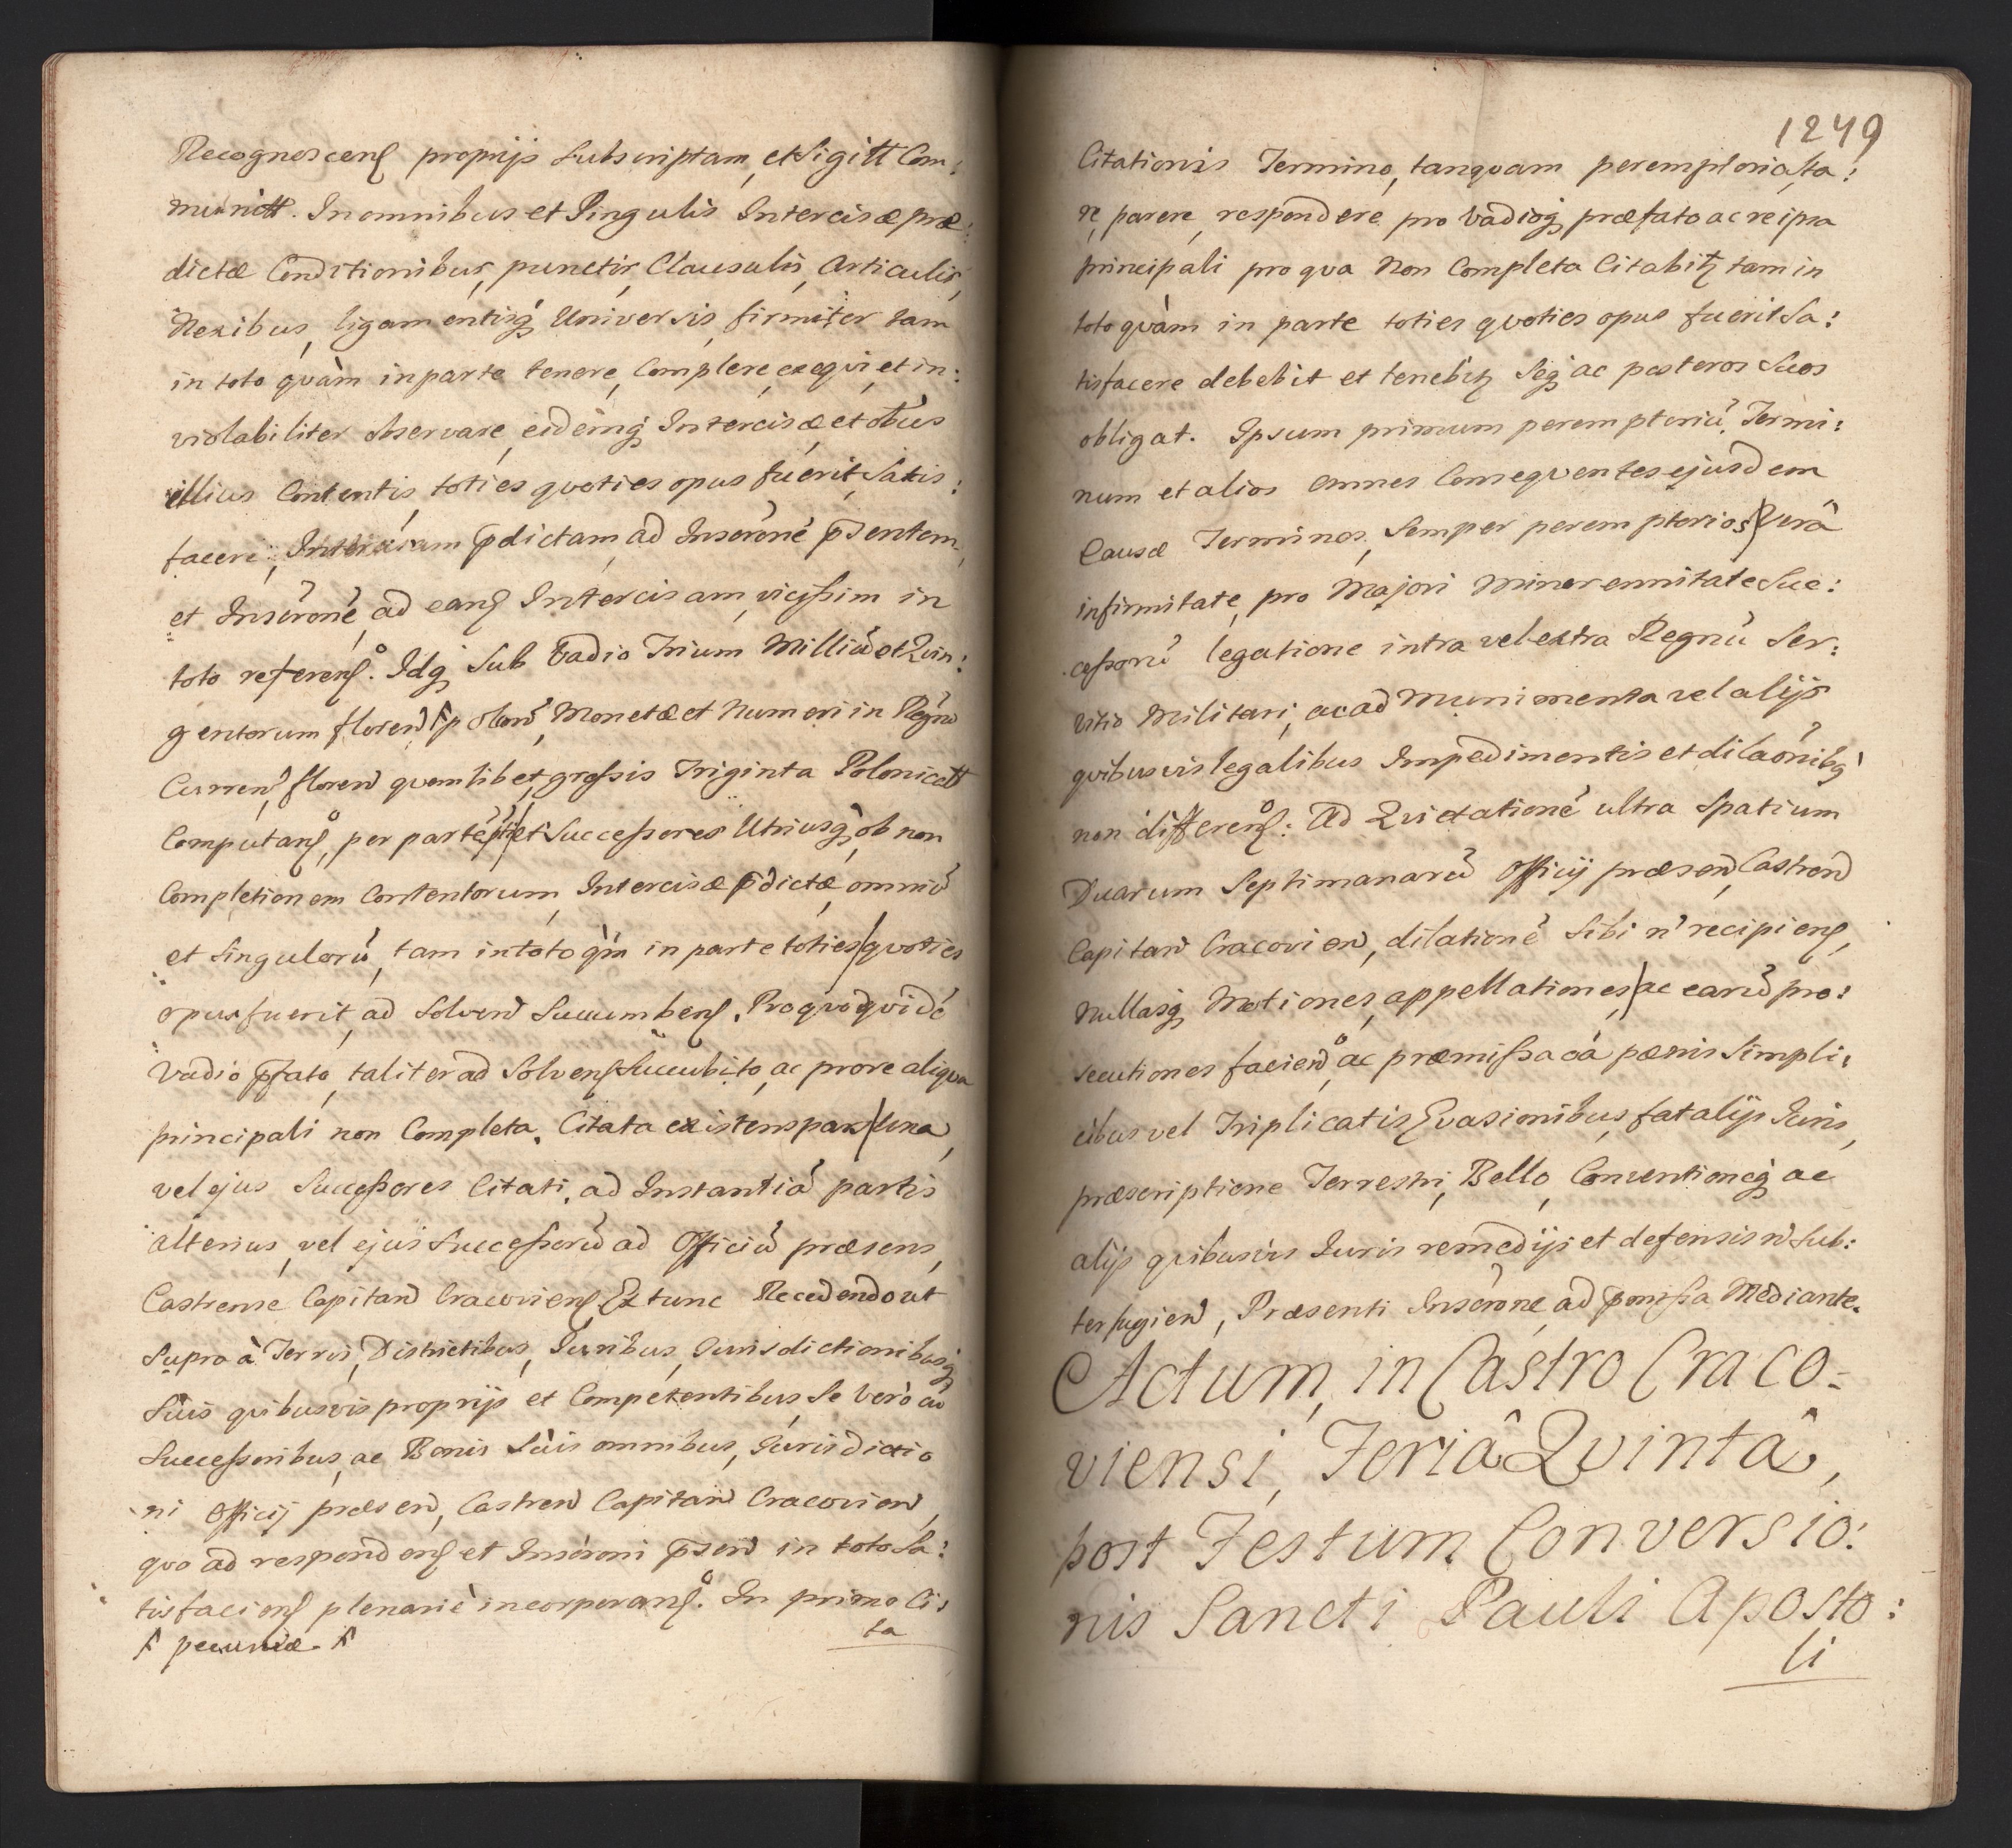 Recognoscenſ proprijs Subscriptam, et Sigitt Com:
munitt. In omnibus et Singulis Intercisæ præ:
dictæ Conditionibus, punctis, Clausulis, Articulis,
Nexibus, ligamentisq́ Universis, firmiter tam
in toto qvàm in parte tenere, Complere, exeqvi, et in:
violabiliter observare, eidemq́ Intercisæ et oĩbus
illius Contentis, toties qvoties opus fuerit, Satis:
facere, Intercisam p̃dictam, ad Inscr̃oné p̃sentem,
et Inscr̃oné, ad eanſ Intercisam, vicißim in
toto referenſ. Idq́ Sub Vadio Trium Milliũ et Qvin:
gentorum floren̄ ꝉ polon̄, Monetæ et Numeri in Regno
Curren̄, floren̄ qvemlibet, großis Triginta Polonicatt
Computanſ, per parté et Succeßores Utriusq́, ob non
Completionem Contentorum, Intercisæ p̃dictæ, omniũ
et Singulorũ, tam in toto q̃m in parte toties qvoties
opus fuerit, ad Solven̄ Succumbenſ. Pro qvo qvidé
Vadio p̃fato, taliter ad Solvenſ Succubito, ac pro re aliqva
principali non Completa. Citata existens pars Una,
vel ejus Succeßores Citati, ad Instantiá partis
alterius, vel ejus Succeßorũ ad Officiũ præsens,
Castrense Capitan̄ Cracovienſ, Ex tunc Recedendo ut
Supra à Terris, Districtibus, Juribus, Jurisdictionibusq́
Suis qvibusvis proprijs et Competentibus, Se verò cũ
Succeßoribus, ac Bonis Suis omnibus, Jurisdictio
ni Officij præsen̄, Castren̄ Capitan̄ Cracovien̄,
qvo ad respondenſ et Inscr̃oni p̃sen̄ in toto Sa:
tisfacienſ plenariè incorporanſ. In primo Ci:
ꝉ pecuniæ. ꝉ
ta
1249
Citationis Termino, tanqvam peremptorio, sta:
re, parere, respondere, pro Vadioq́ præfato ac re ipsa
principali pro qva Non Completa Citabitꝶ tam in
toto qvàm in parte toties qvoties opus fuerit Sa:
tisfacere debebit et tenebitꝶ Seq́ ac posteros Suos
obligat. Ipsum primum peremptoriũ Termi:
num et alios omnes Conseqventes ejusdem
Causæ Terminos, Semper peremptorios, Verâ
infirmitate, pro Majori Minorennitate Suc:
ceßorũ legatione intra vel extra Regnũ Ser:
vitio Militari, ac ad Munimenta vel alijs
qvibusvis legalibus Impedimentis et dilaõnibq́
non differenſ. Ad Qvietationé ultra Spatium
Duarum Septimanarũ Officij præsen̄, Castren̄
Capitan̄ Cracovien̄, dilationé Sibi ñ recipienſ,
Nullasq́ Motiones, appellationes, ac earũ pro:
secutiones facien̄, ac præmißa ca pænis Simpli:
cibus vel Triplicatis Evasionibus, fatalijs Juris,
præscriptione Terrestri, Bello, Conventioneq́ ac
alijs qvibusvis Juris remedijs et defensis ñ Sub:
terfugien̄, Præsenti Inscr̃one, ad p̃mißa Mediante.
Actum, in Castro Craco-
viensi, Feriâ Qvintâ,
post Festum Conversio:
nis Sancti Pauli Aposto:
li